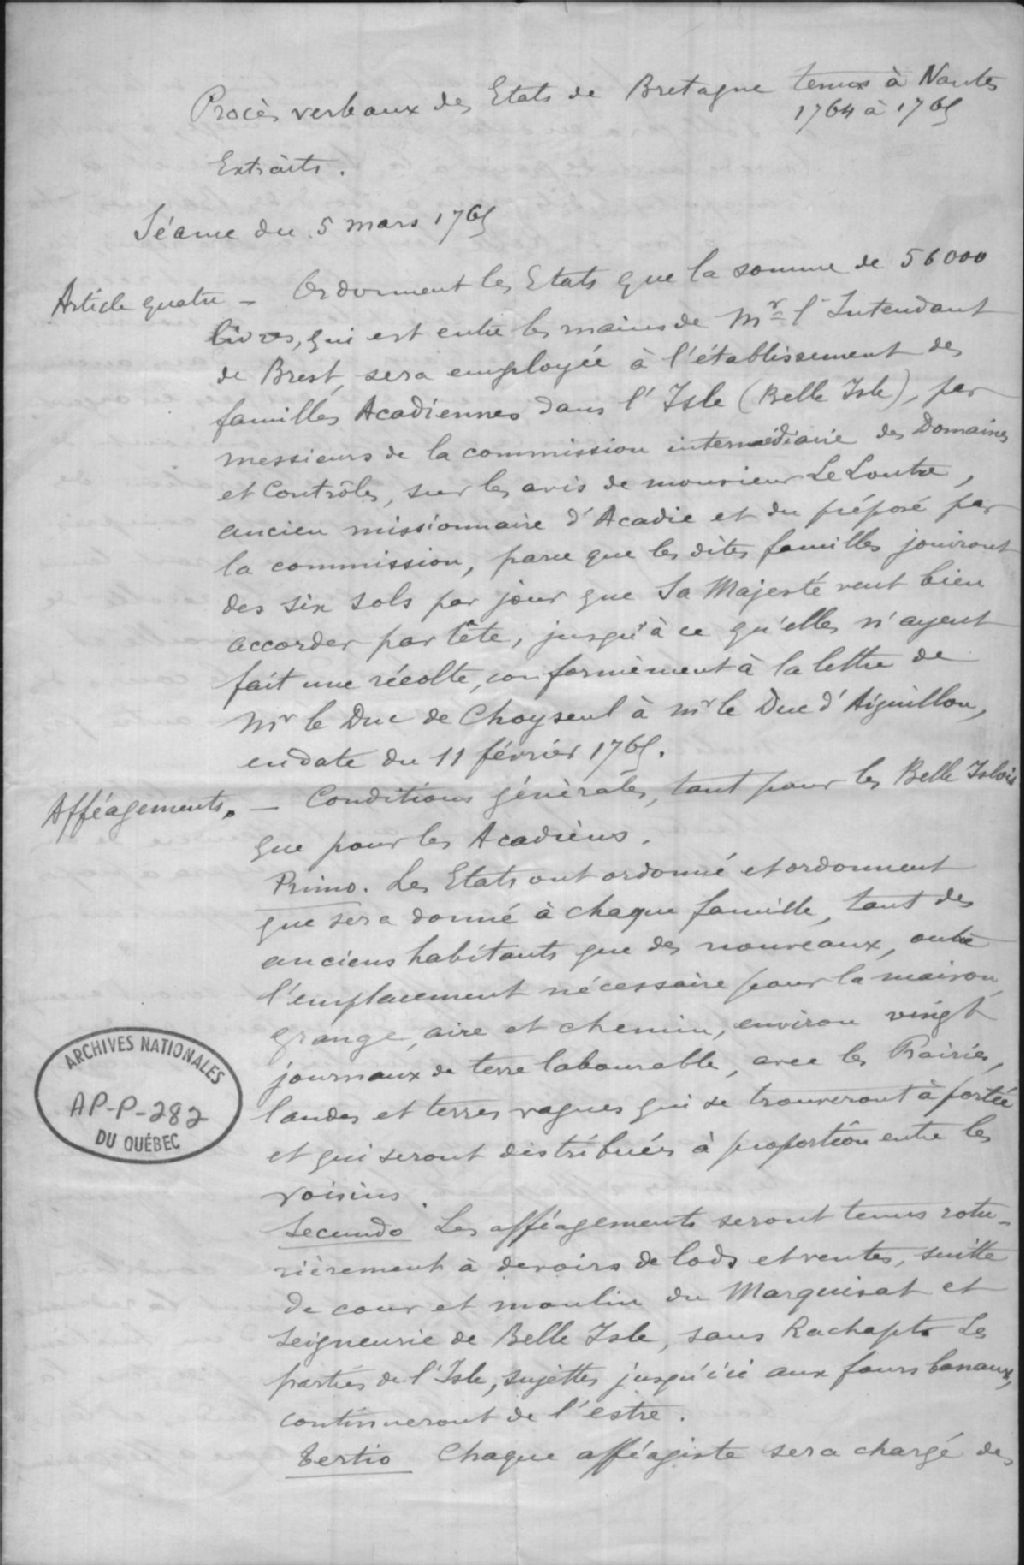 Procès verbaux des Etats de Bretagne tenus à Nantes
1764 à 1765
Extraits.
Séance du 5 mars 1765
Article quatre — Ordonnent les Etats que la somme de 56000
livres, qui est entre les mains de Mr l'Intendant
de Brest, sera employée à l'établissement des
familles Acadiennes dans l'Isle (Belle Isle), par
messieurs de la commission intermédiaire des Domaines
et Contrôles, sur les avis de monsieur Le Loutre,
ancien missionnaire d'Acadie et du préposé par
la commission, parce que les dites familles jouiront
des six sols par jour que Sa Majesté veut bien
accorder par tête, jusqu'à ce qu'elles n'ayent
fait une récolte, conformèment à la lettre de
Mr le Duc de Choyseul à mr le Duc d'Aiguillon,
en date du 11 février 1765.
Afféagements. — Conditions générales, tant pour les Belle Islois
que pour les Acadiens.
Primo. Les Etats ont ordonné et ordonnent
que sera donné à chaque famille, tant des
anciens habitants que des nouveaux, outre
l'emplacement nécessaire pour la maison,
grange, aire et chemin, environ vingt
journaux de terre labourable, avec les Prairies,
landes et terres vagues qui se trouveront à portée
et qui seront distribuées à proportion entre les
voisins.
Secundo Les afféagements seront tenus rotu-
rièrement à devoirs de lods et ventes, suitte
de cour et moulin du Marquisat et
Seigneurie de Belle Isle, sans Rachapt. Les
parties de l'Isle, sujettes jusqu'ici aux fours banaux,
continueront de l'estre.
Tertio Chaque afféagiste sera chargé des
ARCHIVES NATIONALES
AP-P-282
DU QUÉBEC